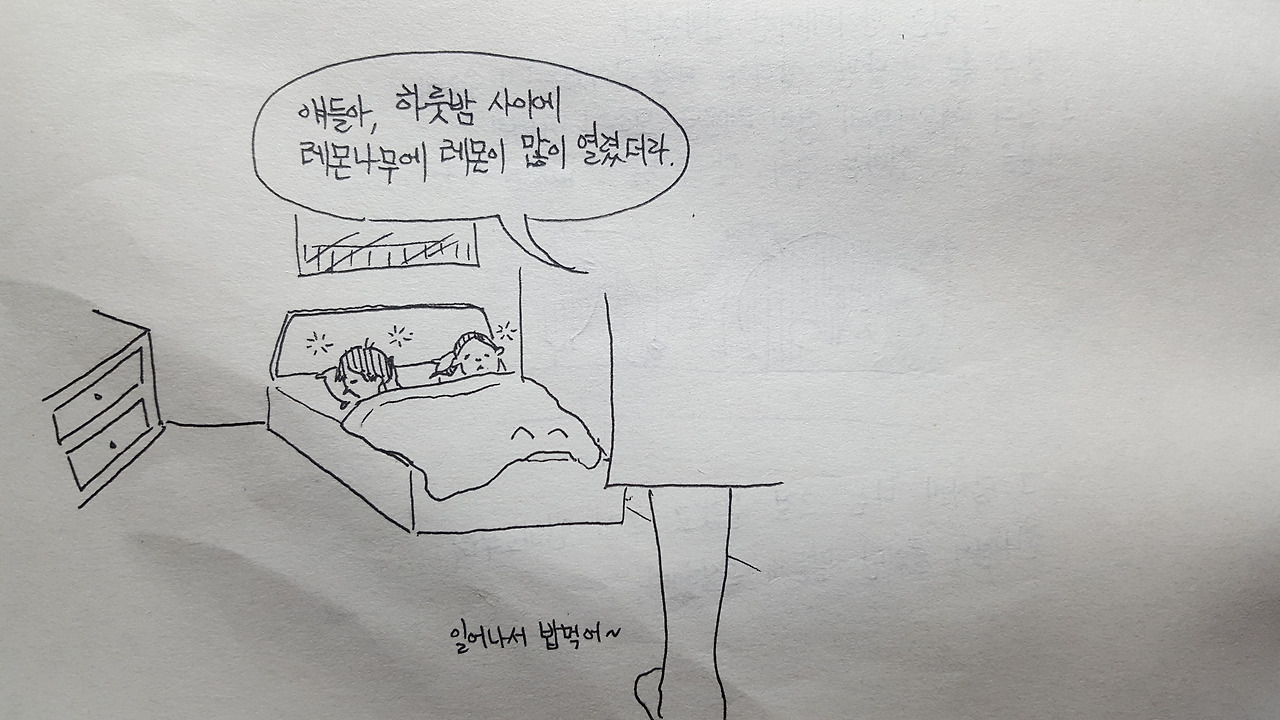 얘들아, 하룻밤 사이에
레몬나무에 레몬이 많이 열렸더라.
일어나서 밥먹어~